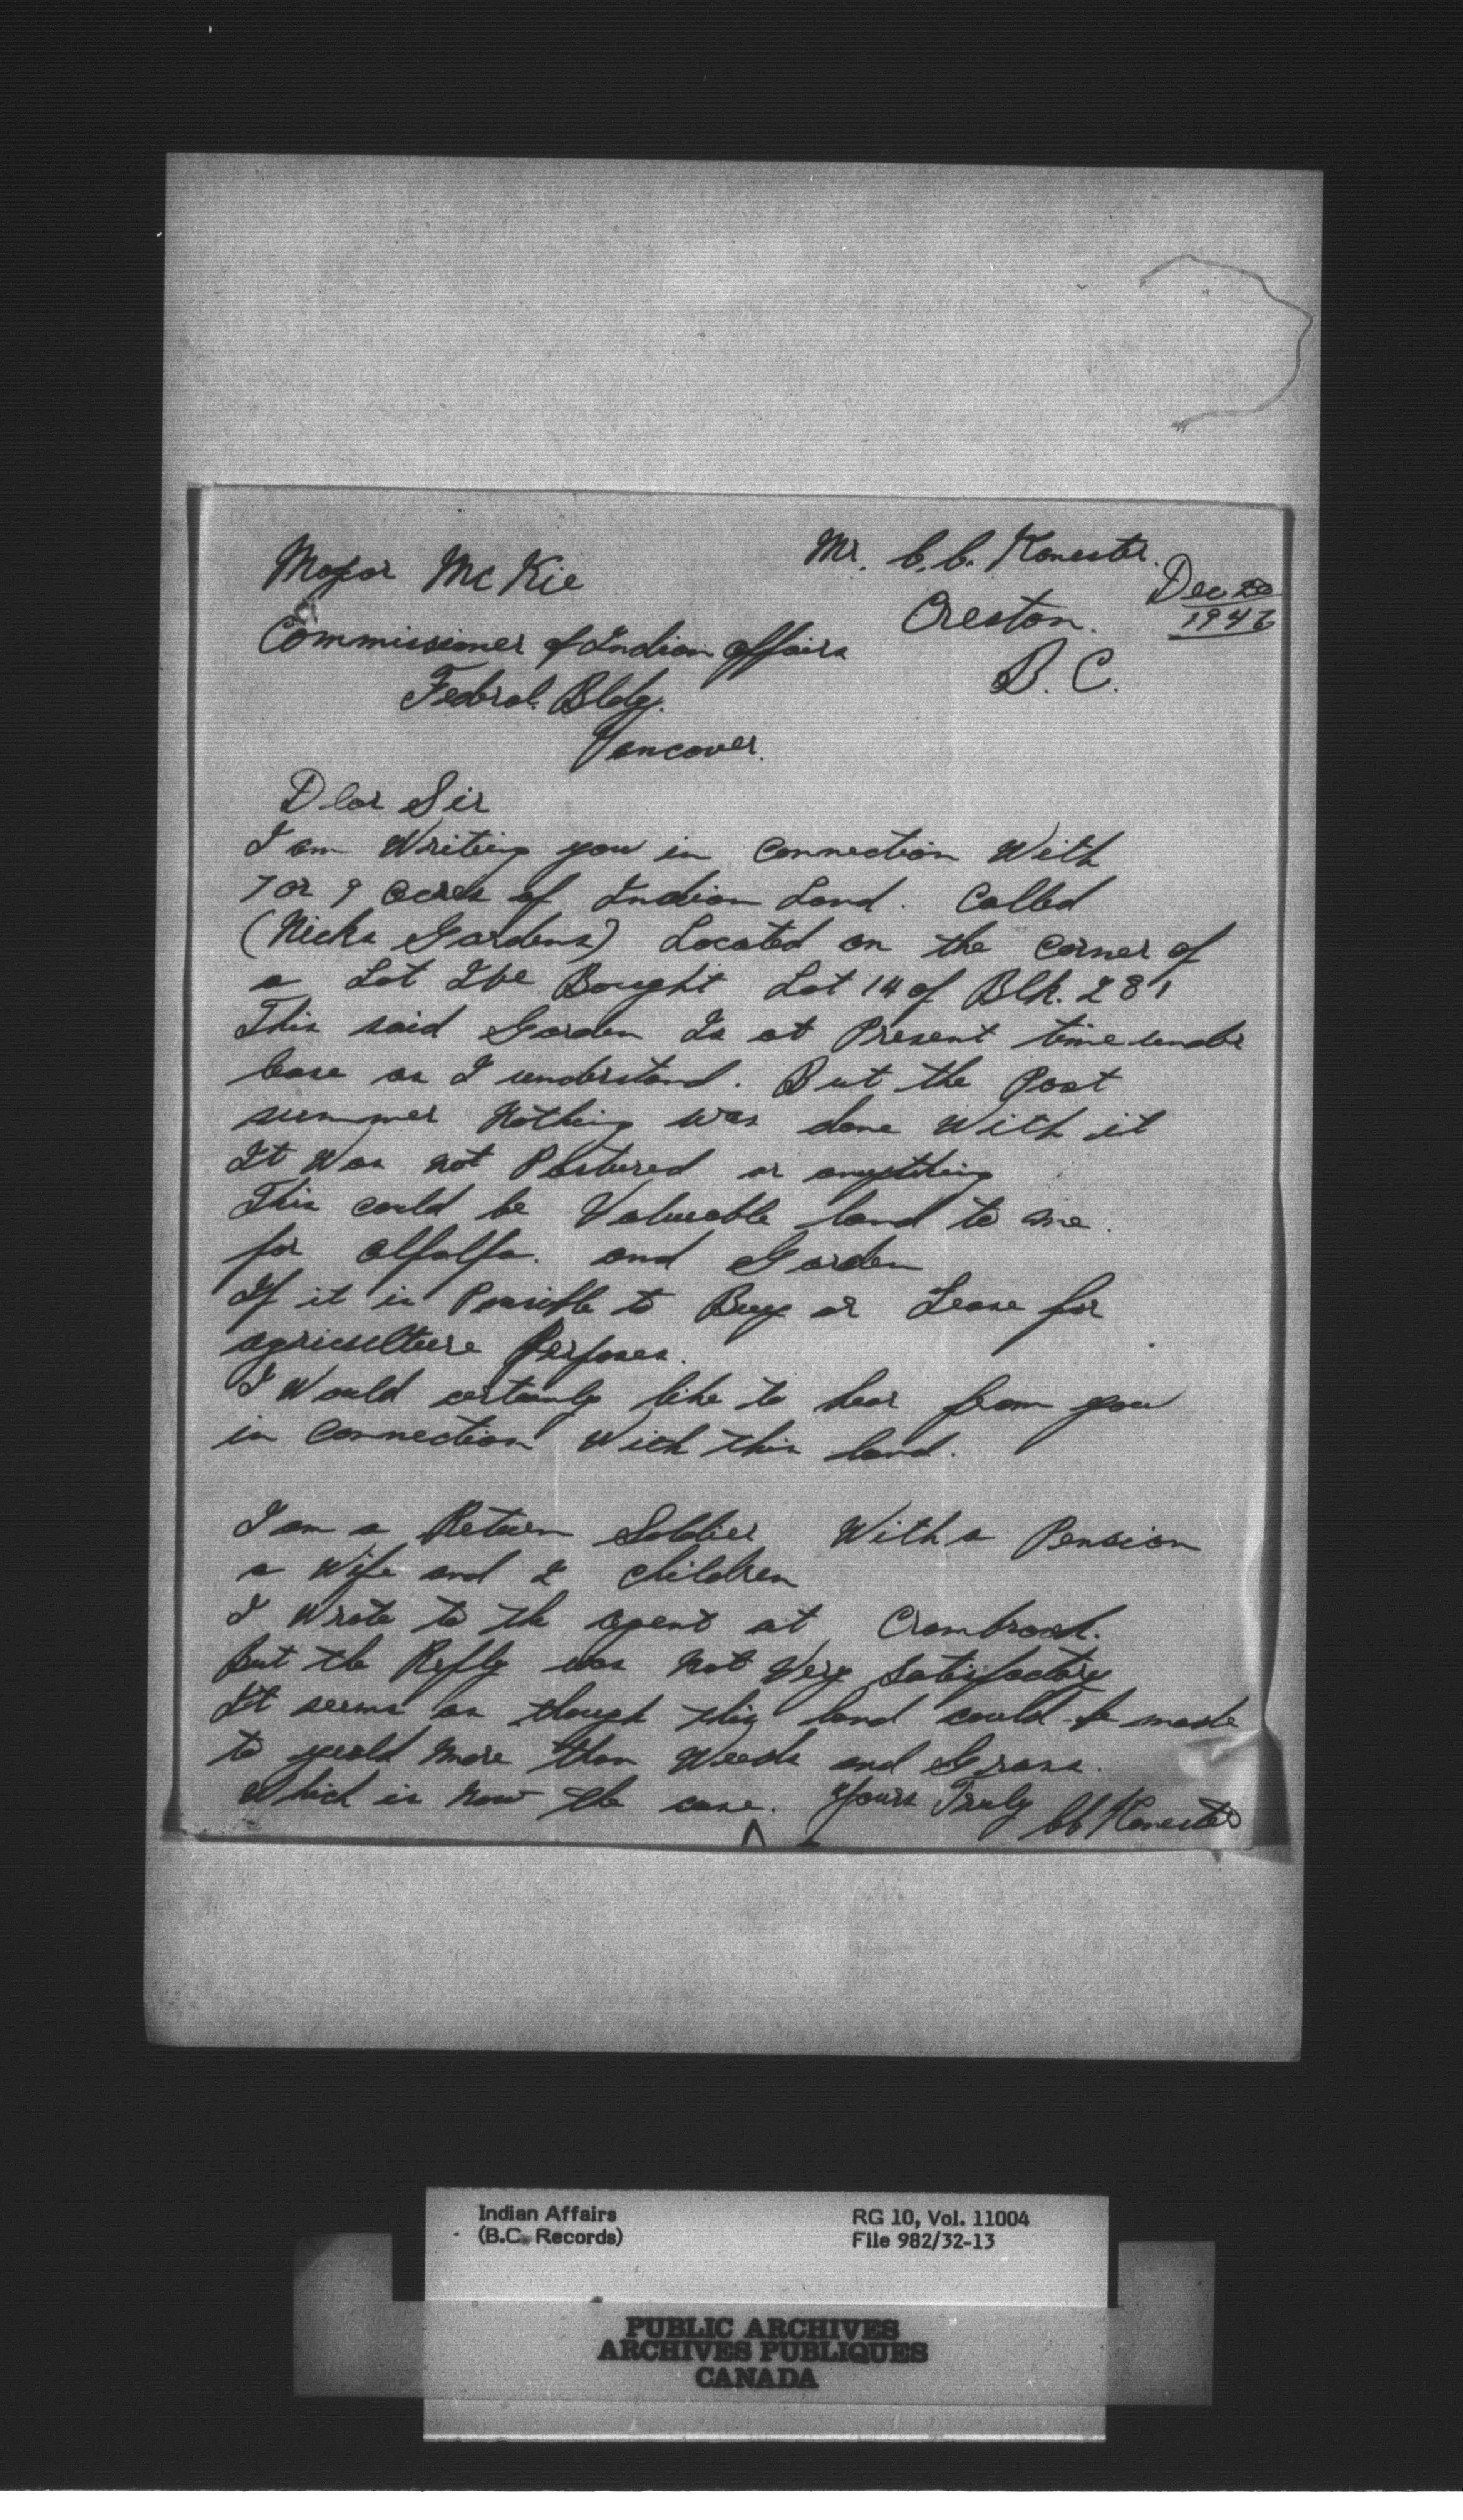 Mr. C.C. Kanester.
Dec 20
1946
Major McKie
Creston.
Commissioner of Indian Affairs
B.C.
Fedral. Bldg.
Vancover.
Dear Sir
I am Writing you in Connection With
7 or 9 acres of Indian Land. Called
(Nicks Gardens) Located on the Corner of
a Lot Ive Bought Lot 14 of Blk. 281
This said Garden Is at Present time under
lease as I understand. But the Past
summer Nothing was done With it
It Was not Pastured or anything
This could be Valuable land to me.
for alfalfa. and Garden
If it is Possible to Buy or Lease for
agriculture Perposes.
I Would certainly like to hear from you
in Connection With this land.
I am a Return Soldier With a Pension
a Wife and 2 children
I Wrote to the agent at Cranbrook.
But the Reply was Not Very Satisfactory
It seems as though this land could be made
to yeald More than Weeds and Grass.
Which is Now the case. Yours Truly
CC Kanester
Indian Affairs
(B.C. Records)
RG 10, Vol. 11004
File 982/32-13
PUBLIC ARCHIVES
ARCHIVES PUBLIQUES
CANADA